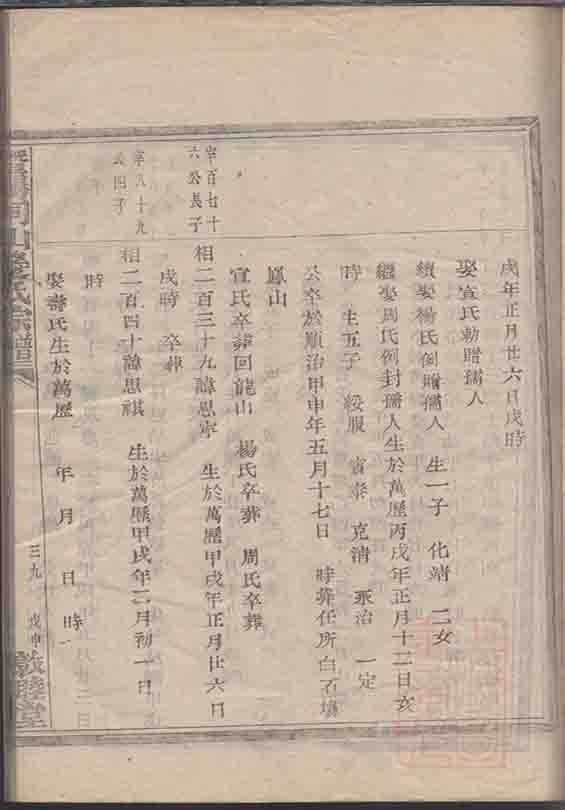 戌年正月廿六日戌時
娶宣氏勅贈孺人
續娶楊氏例贈孺人 生一子 化靖 二女
繼娶周氏例封孺人生於萬歷丙戌年正月十二日亥
時 生五子 綏服 賓泰 克清 永治 一定
公卒於順治甲申年五月十七日 時葬任所白石墳
鳳山
宣氏卒葬回龍山 楊氏卒葬 周氏卒葬
宰百七十
六公長子
相二百三十九諱思寧 生於萬歷甲戌年正月廿六日
戌時 卒葬
宰八十九
公四子
相二百四十諱思祺 生於萬歷甲戌年二月初一日
時
娶壽氏生於萬歷 年 月 日 時
山 氏宗譜
三九
戊申
敦睦堂